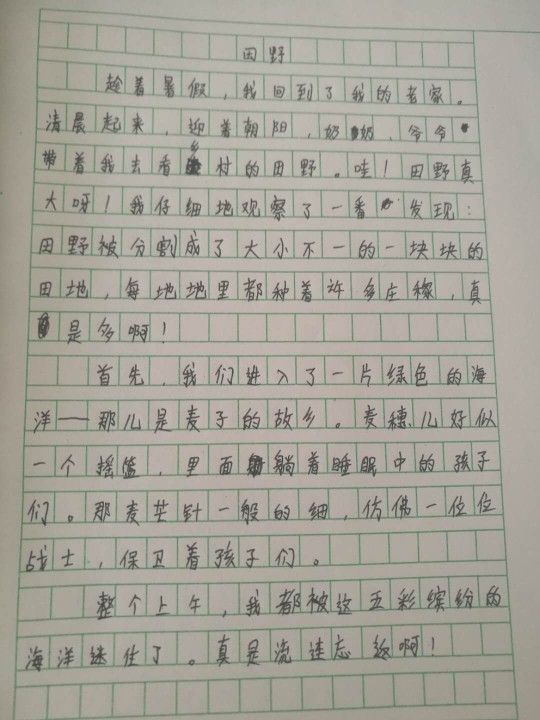 田野
趁着暑假，我回到了我的老家。
清晨起来，迎着朝阳，奶奶、爷爷
带着我去看乡村的田野。哇！田野真
大呀！我仔细地观察了一番，发现：
田野被分割成了大小不一的一块块的
田地，每地地里都种着许多庄稼，真
是多啊！
首先，我们进入了一片绿色的海
洋——那儿是麦子的故乡。麦穗儿好似
一个摇篮，里面躺着睡眠中的孩子
们。那麦芒针一般的细，仿佛一位位
战士，保卫着孩子们。
整个上午，我都被这五彩缤纷的
海洋迷住了。真是流连忘返啊！